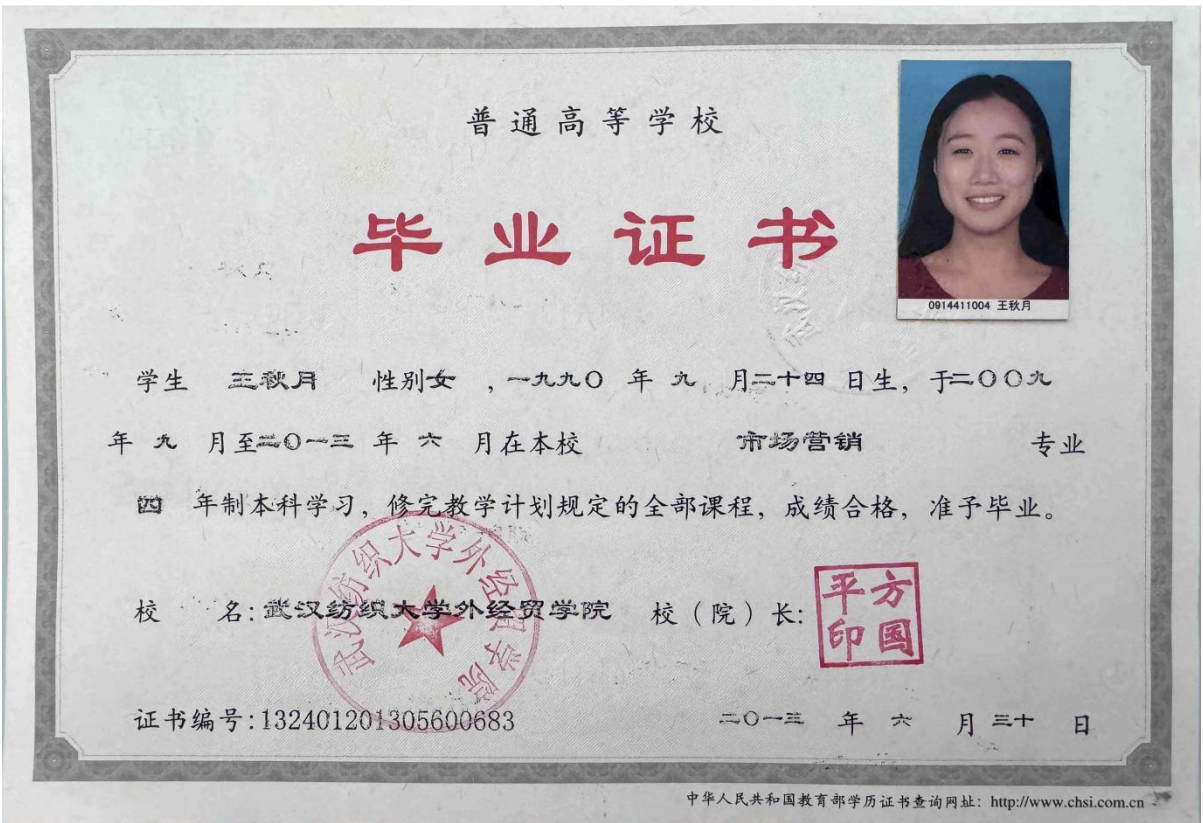 普通高等学校
毕业证书
0914411004 王秋月
学生 王秋月 性别女，一九九〇年九月二十四日生，于二〇〇九
年九月至二〇一三年六月在本校 市场营销 专业
四年制本科学习，修完教学计划规定的全部课程，成绩合格，准予毕业。
武汉纺织大学外经贸学院
校 名：武汉纺织大学外经贸学院 校（院）长：
平方
印国
证书编号：132401201305600683 二〇一三年六月三十日
中华人民共和国教育部学历证书查询网址：http://www.chsi.com.cn